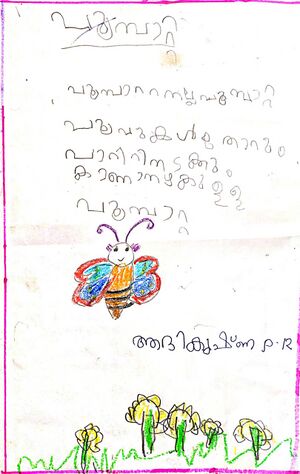 പൂമ്പാറ്റ
പൂമ്പാറ്റ നല്ല പൂമ്പാറ്റ
പൂവുകൾ തോറും
പാറിനടക്കും
കാണാനഴകുള്ള
പൂമ്പാറ്റ
ആദികൃഷ്ണ P.R